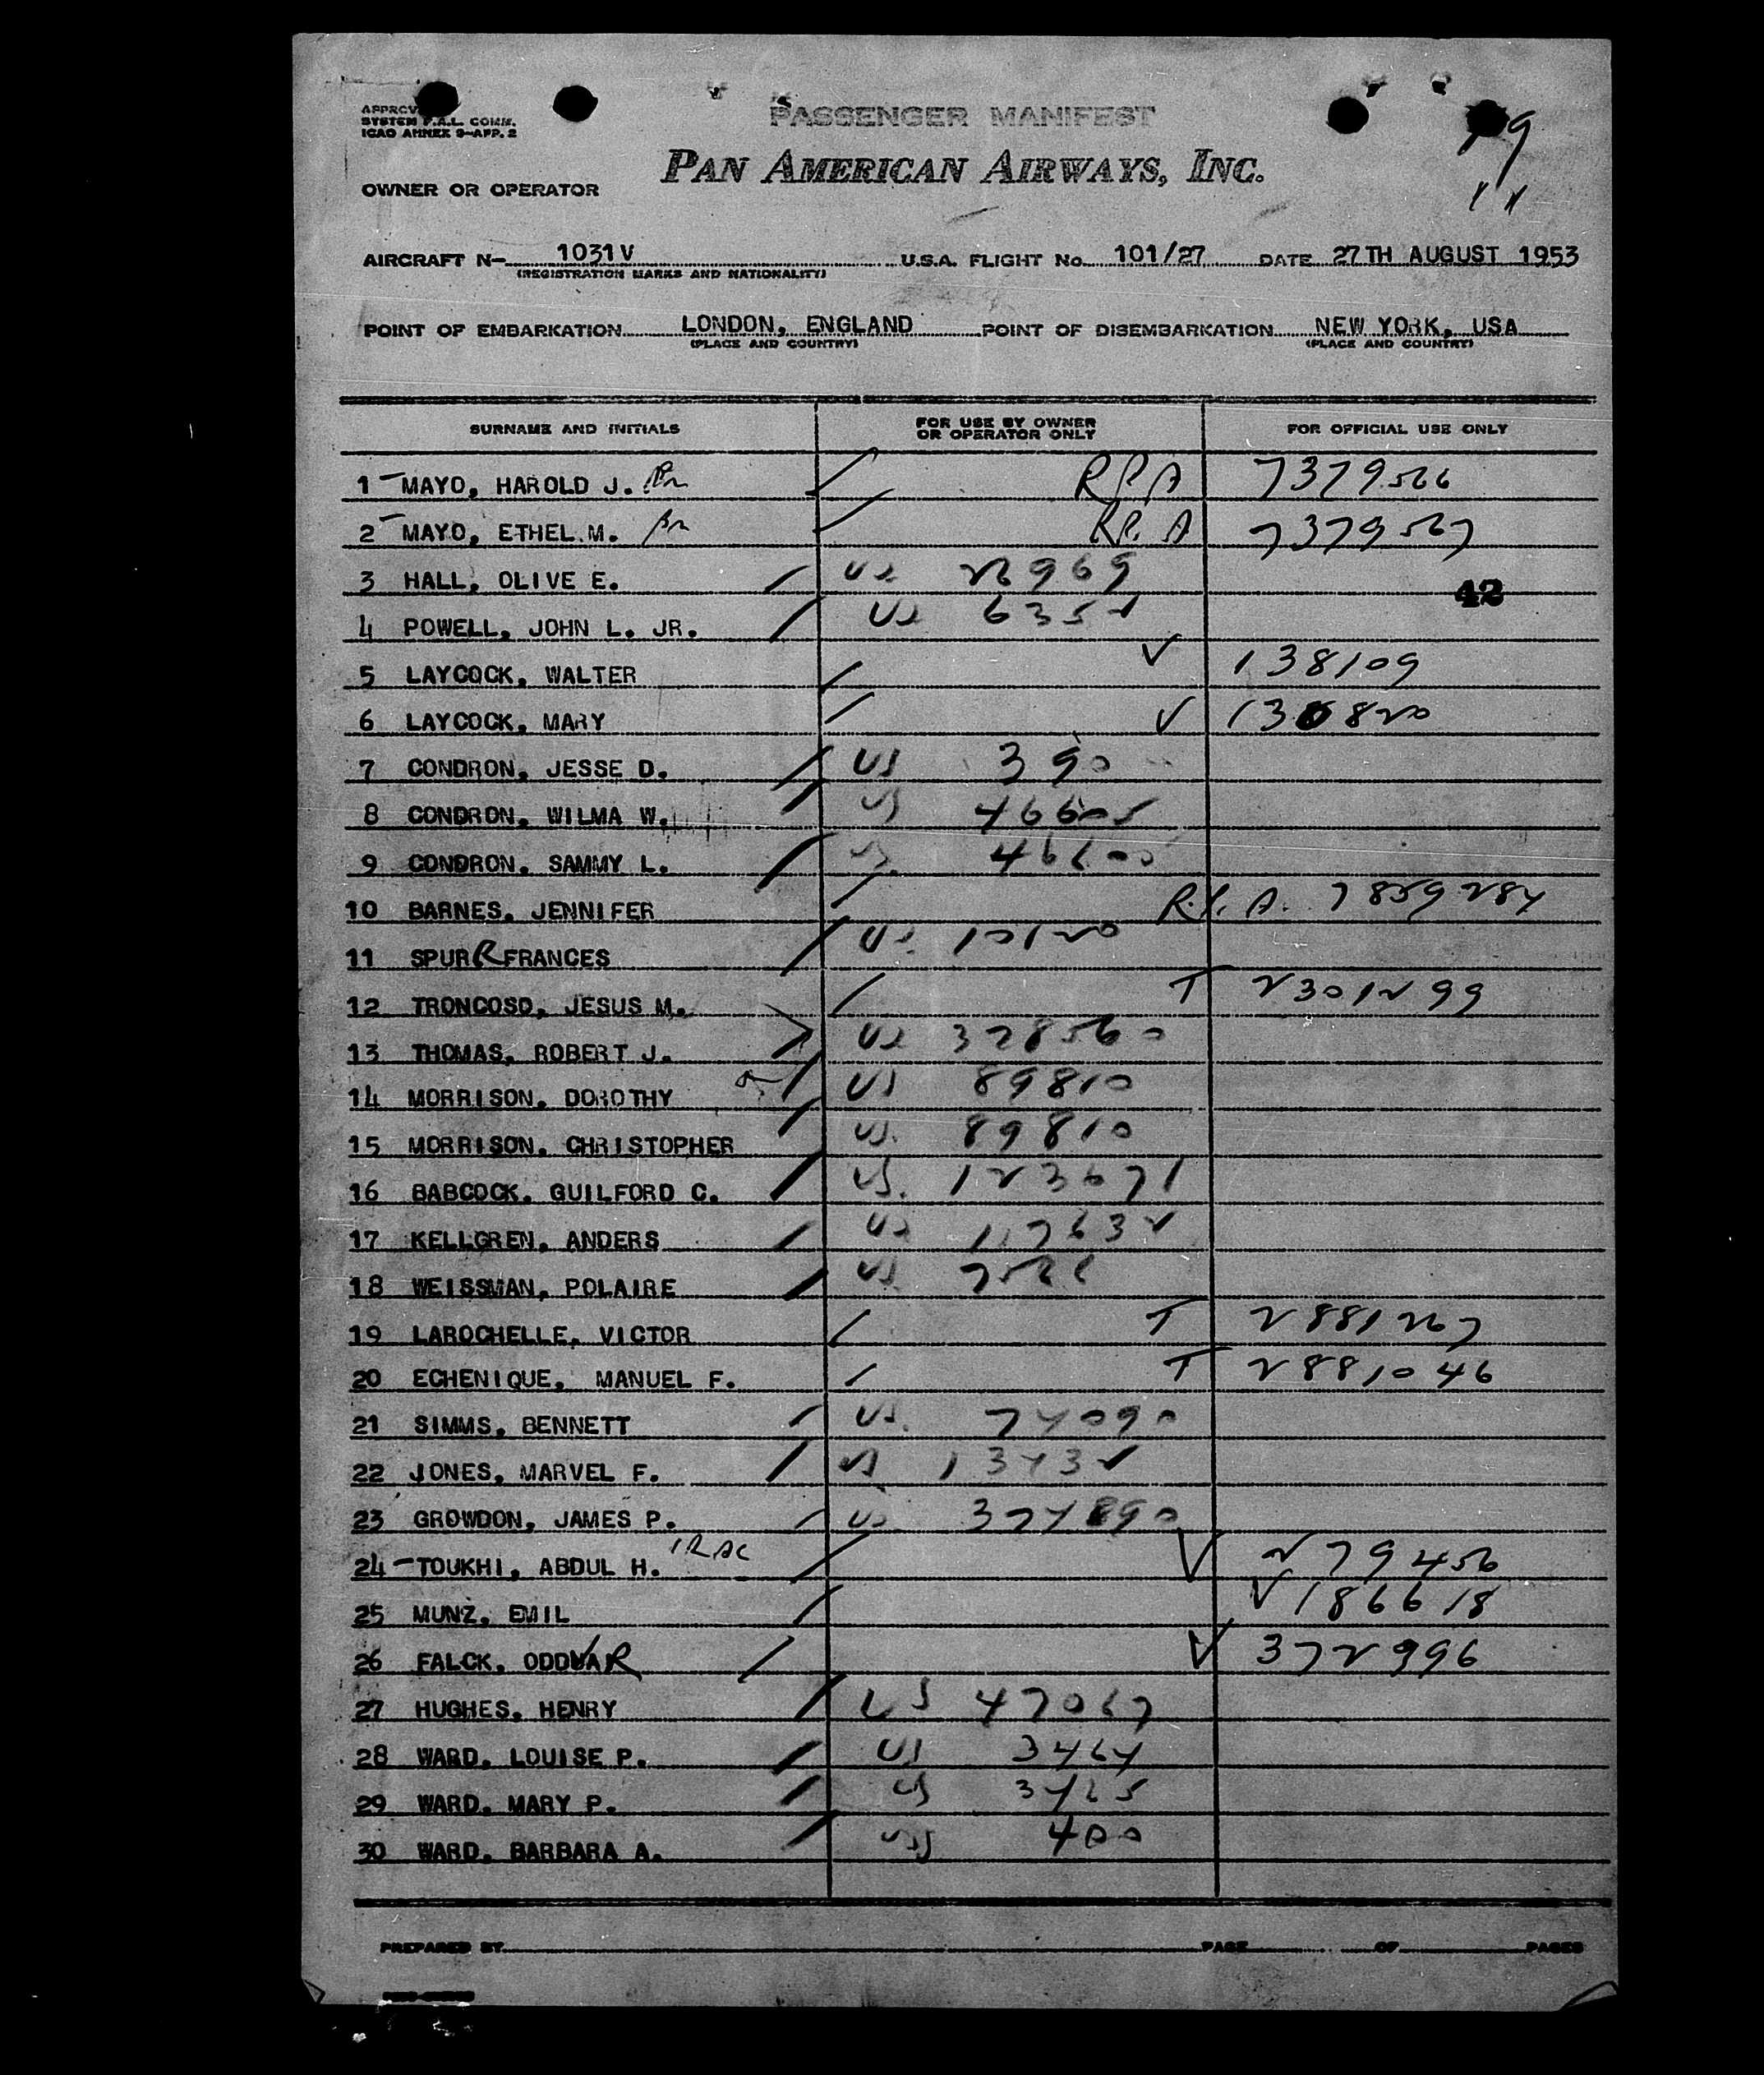 PASSENGER MANIFEST
SYSTEM F.A.L. COMM.
ICAO ANNEX 9-APP. 2
PAN AMERICAN AIRWAYS, INC.
OWNER OR OPERATOR
AIRCRAFT N- 1031V U.S.A. FLIGHT No. 101/27 DATE 27TH AUGUST 1953
(REGISTRATION MARKS AND NATIONALITY)
POINT OF EMBARKATION LONDON, ENGLAND POINT OF DISEMBARKATION NEW YORK, USA
(PLACE AND COUNTRY) (PLACE AND COUNTRY)
SURNAME AND INITIALS FOR USE BY OWNER OR OPERATOR ONLY FOR OFFICIAL USE ONLY
1 - MAYO, HAROLD J. Br RPA 7379566
2 - MAYO, ETHEL M. Br RPA 7379567
3 HALL, OLIVE E. US
42
4 POWELL, JOHN L. JR. US 6352
5 LAYCOCK, WALTER V 138109
6 LAYCOCK, MARY V
7 CONDRON, JESSE D. US 390
8 CONDRON, WILMA W. US
9 CONDRON, SAMMY L. US
10 BARNES, JENNIFER 7859284
11 SPURR FRANCES US 10120
12 TRONCOSO, JESUS M. T 2301299
13 THOMAS, ROBERT J. US 328560
14 MORRISON, DOROTHY US 89810
15 MORRISON, CHRISTOPHER US. 89810
16 BABCOCK, GUILFORD C. US. 123671
17 KELLGREN, ANDERS US 117632
18 WEISSMAN, POLAIRE US
19 LAROCHELLE, VICTOR T 2881267
20 ECHENIQUE, MANUEL F. T 2881046
21 SIMMS, BENNETT US. 74090
22 JONES, MARVEL F. US 13432
23 GROWDON, JAMES P. US 374890
24 - TOUKHI, ABDUL H. V 279456
25 MUNZ, EMIL V 186618
26 FALCK, ODDVAR V 372996
27 HUGHES, HENRY US 47067
28 WARD, LOUISE P. US 3464
29 WARD, MARY P. US 3465
30 WARD, BARBARA A. US 400
PREPARED BY PAGE OF PAGES